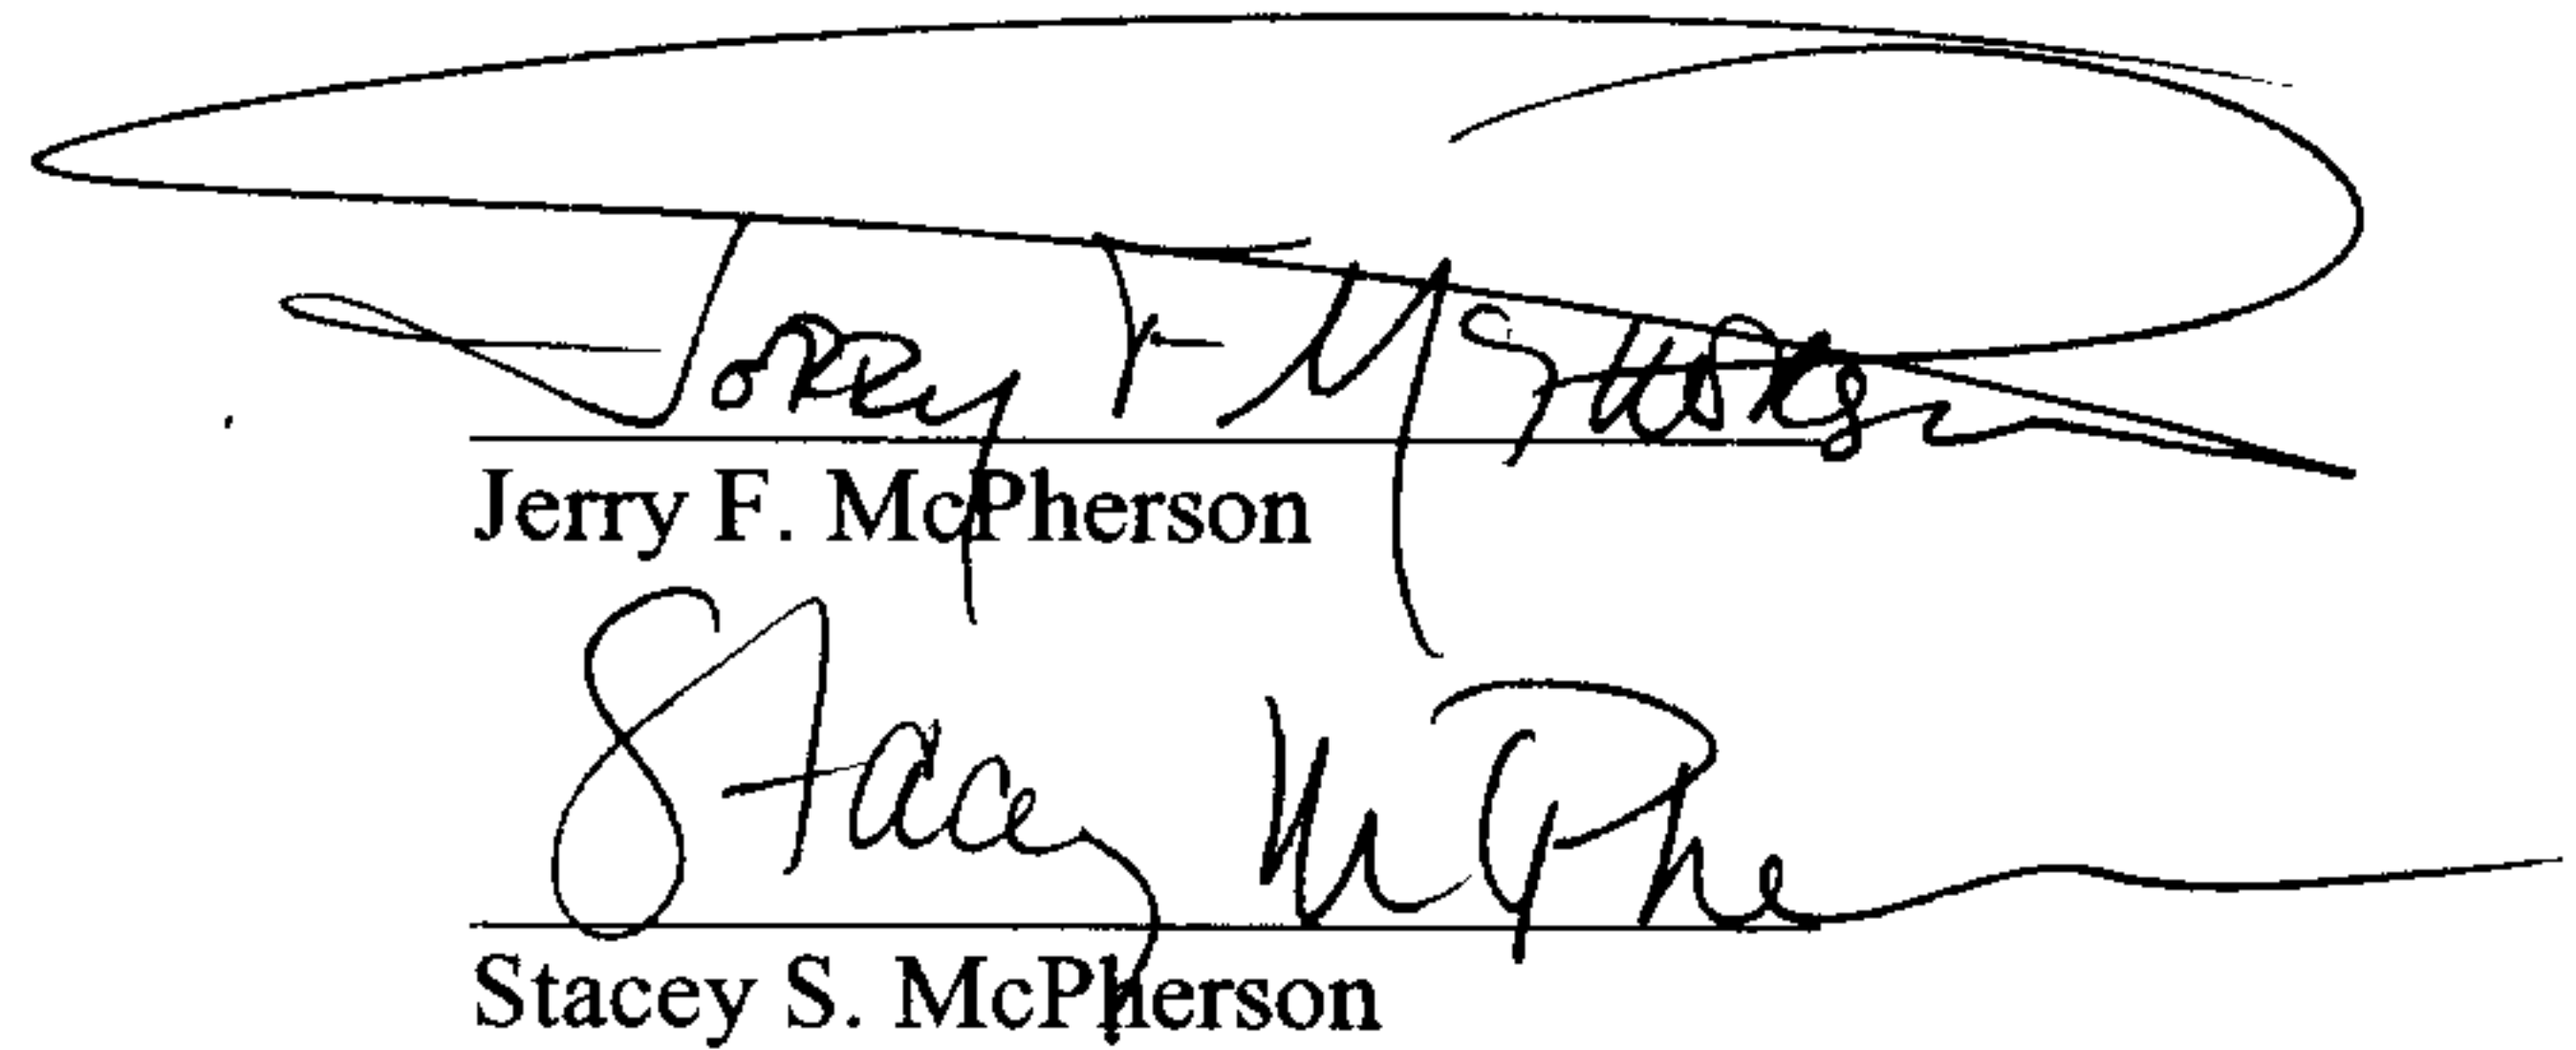 Jerry F. McPherson
Jerry F. McPherson
Stacey McPhe
Stacey S. McPherson